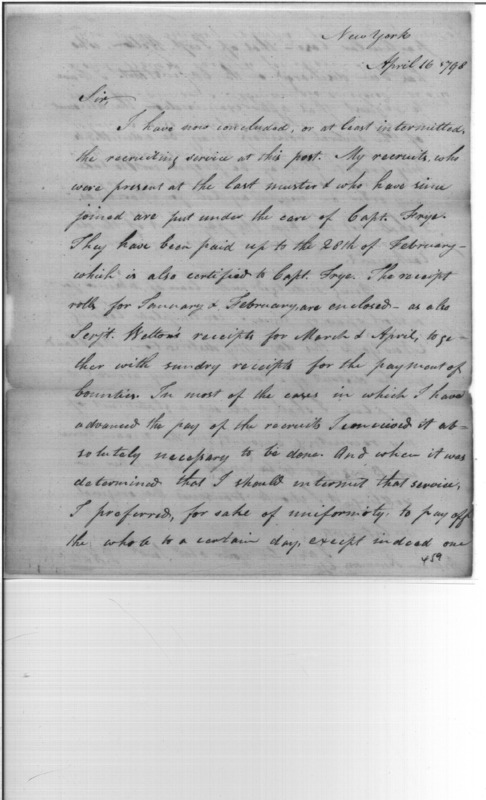 New York
April 16 1798
Sir,
I have now concluded, or at least intermitted,
the recruiting service at this post. My recruits, who
were present at the last muster & who have since
joined are put under the care of Capt. Frye.
They have been paid up to the 28th of February-
which is also certified to Capt. Frye. The receipt
rolls for January & February are enclosed- as also
Serjt. Welton's receipts for March & April, toge-
ther with sundry receipts for the payment of
bounties. In most of the cases in which I have
advanced the pay of the recruits I conceived it ab-
solutely necessary to be done. And when it was
determined that I should intermit that service,
I preferred, for sake of uniformity, to pay off
the whole to a certain day, except indeed one
459